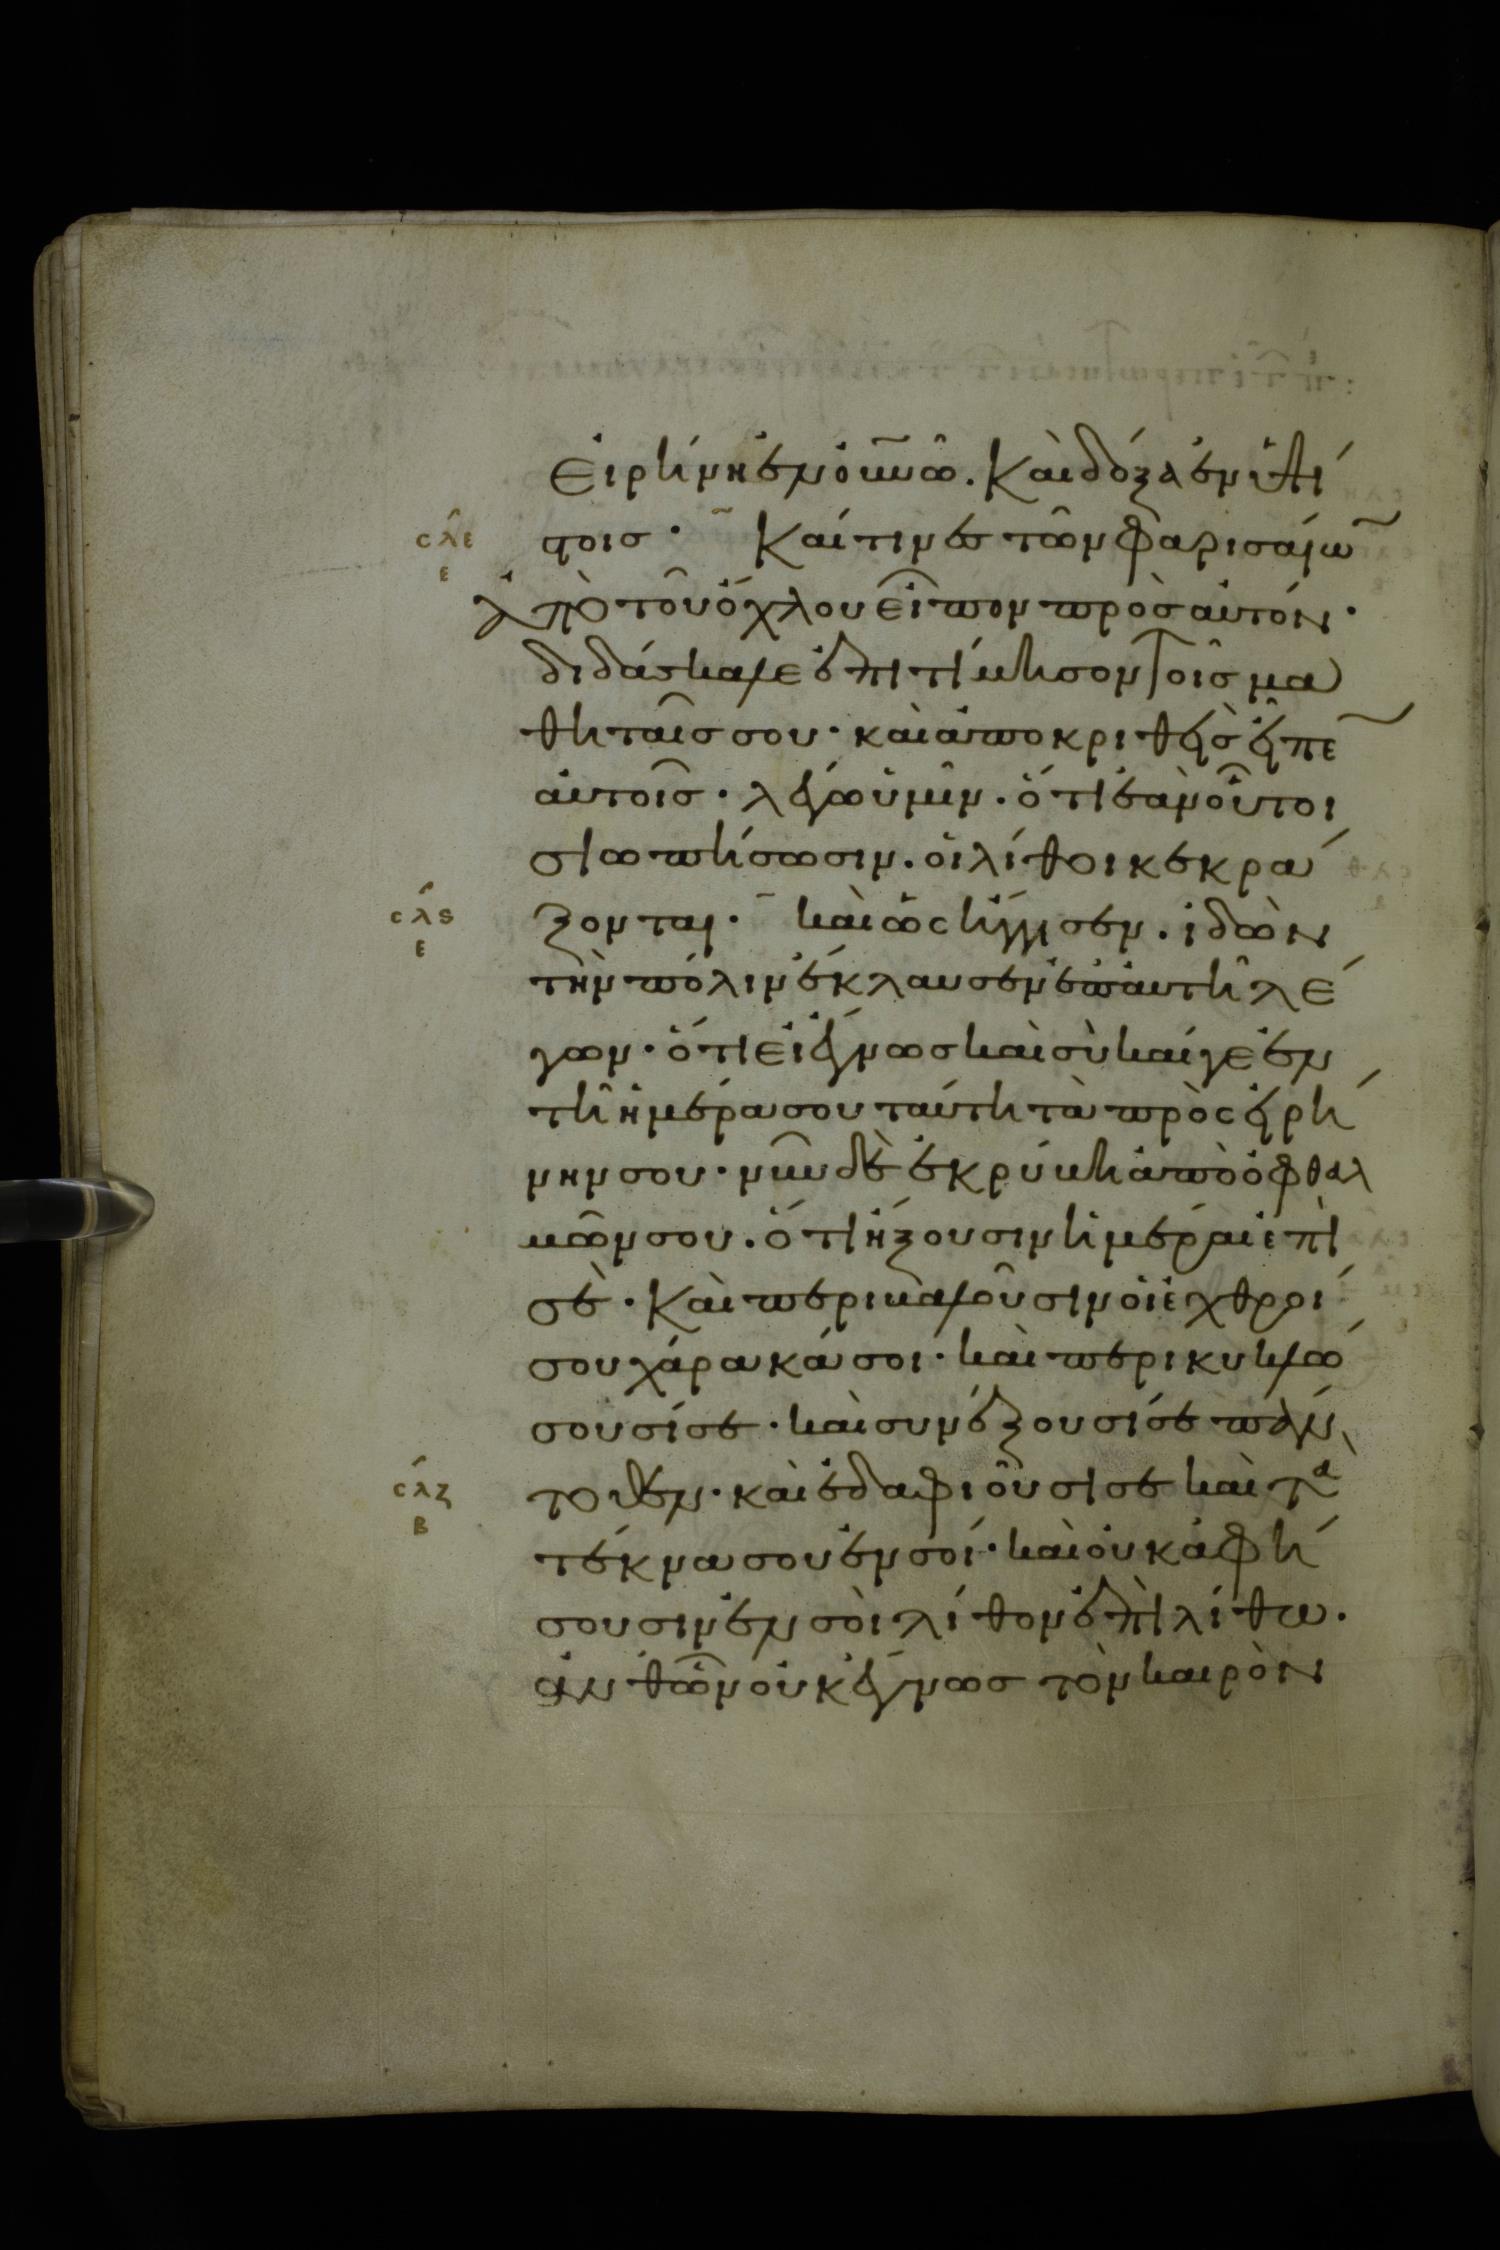 Εἰρήνη ἐν οὐνῶ. Καὶ δόξα ἐν ὑψί
στοις· Καί τινες τῶν φαρισαίω̃
ἀπὸ τοῦ ὄχλου εἶπον πρὸς αὐτόν·
διδάσκαλε ἐπιτίμησον τοῖς μα
θηταῖς σου· καὶ ἀποκριθεὶς εἶπε
αὐτοῖς· λέγω ὑμῖν. ὅτι ἐὰν οὗτοι
σιωπήσωσιν. οἱ λίθοι κεκρά
ξονται· καὶ ὡς ἤγγισεν. ἰδὼν
τὴν πόλιν ἔκλαυσεν ἐπ' αὐτῆ λέ
γων· ὅτι εἰ ἔγνως καὶ σὺ καί γε ἐν
τῆ ἡμέρα σου ταύτη τὰ πρὸς εἰρή
νην σου· νῦν δὲ ἐκρύβη ἀπὸ ὀφθαλ
μῶν σου. ὅτι ἥξουσιν ἡμέραι ἐπὶ
σὲ· Καὶ περιβαλοῦσιν οἱ ἐχθροί
σου χάρακά σοι· καὶ περικυκλώ
σουσί σε· καὶ συνέξουσί σε πάν
τοθεν· καὶ ἐδαφιοῦσί σε καὶ τὰ
τέκνα σου ἐν σοί· καὶ οὐκ ἀφή
σουσιν ἐν σοὶ λίθον ἐπὶ λίθω.
ἀνθ' ὧν οὐκ ἔγνως τὸν καιρὸν
σλε
ε
σλϛ
ε
σλζ
β